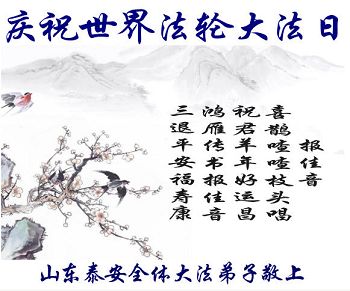 庆祝世界法轮大法日
报佳音
喜鹊喳喳枝头唱
祝君羊年好运昌
鸿雁传书报佳音
三退平安福寿康
山东泰安全体大法弟子敬上